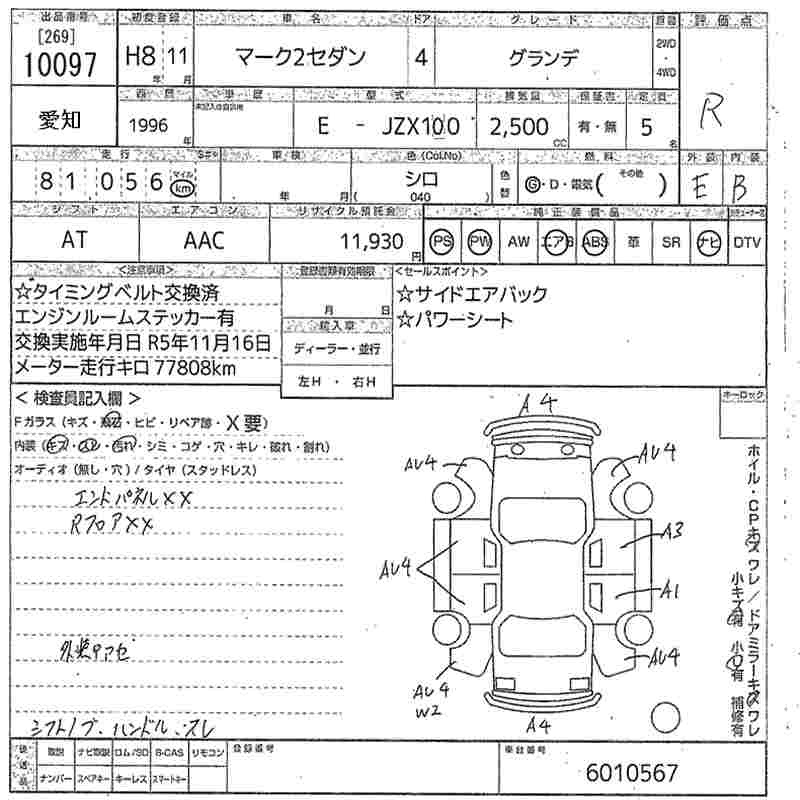 出品番号 初度登録 車名 ドア グレード 評価点
[269]
10097 H8年 11月 マーク2セダン 4 グランデ 2WD・4WD R
愛知 西暦 車歴 型式 排気量 保証書 定員
1996年 E - JZX100 2,500cc 有・無 5名
走行 車検 色(Col.No) 燃料 外装 内装
81056 マイル km 年 月 シロ (040 色替 G・D・電気( その他 ) E B
シフト エアコン リサイクル預託金 純正装備品
AT AAC 11,930円 PS PW AW エアB ABS 革 SR ナビ DTV
<注意事項> 登録書類有効期限 <セールスポイント>
☆タイミングベルト交換済 月 日 ☆サイドエアバック
エンジンルームステッカー有 輸入車 ☆パワーシート
交換実施年月日 R5年11月16日 ディーラー・並行
メーター走行キロ 77808km 左H・右H
<検査員記入欄> キーロック
Fガラス(キズ・飛石・ヒビ・リペア跡・X要)
内装(キズ・スレ・汚れ・シミ・コゲ・穴・キレ・破れ・割れ)
オーディオ(無し・穴)/タイヤ(スタッドレス)
エンドパネルXX
RフロアXX
外装色アセ
シフトノブ、ハンドル、スレ
A4
AU4
AU4
A3
AU4
A1
AU4
AU4
W2
A4
ホイル・CPキズ ワレ/ドアミラーキズ ワレ
小キズ有 小凹有 補修有
後送品 取説 ナビ取説 ロム/SD B-CAS リモコン 登録番号 車台番号
ナンバー スペアキー キーレス スマートキー 6010567